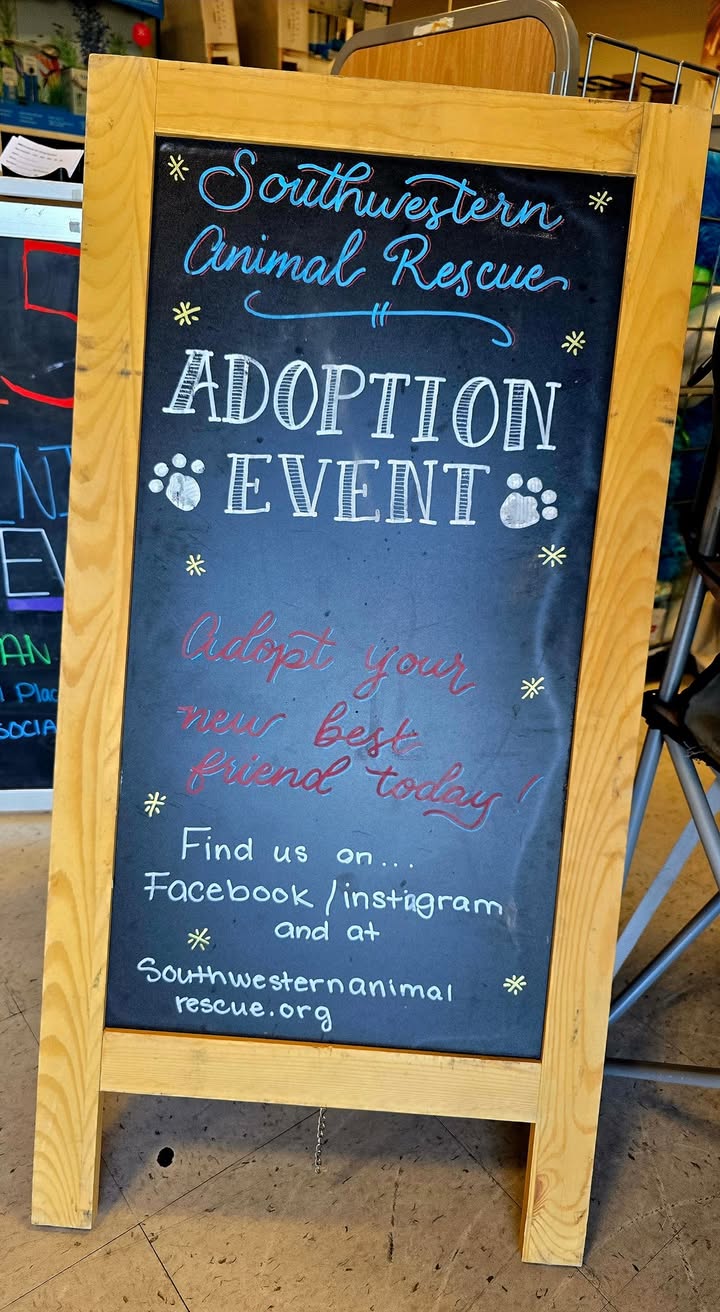 Southwestern
Animal Rescue
ADOPTION
EVENT
Adopt your
new best
friend today!
Find us on...
Facebook/instagram
and at
Southwesternanimal
rescue.org
5
AN
l Plac
SOCIA